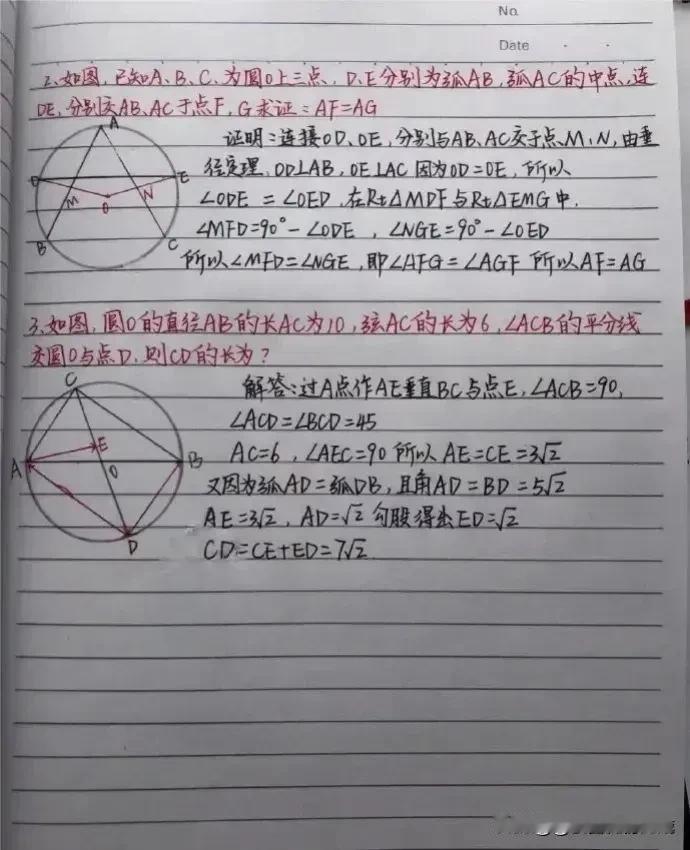 No.
Date
2、如图,已知A、B、C、为圆O上三点、D、E分别为弧AB,弧AC的中点,连
DE,分别交AB、AC于点F,G求证:AF=AG
证明:连接OD、OE,分别与AB、AC交于点M、N,由垂
径定理,OD⊥AB,OE⊥AC 因为OD=OE,所以
∠ODE=∠OED,在Rt△MDF与Rt△EMG中,
∠MFD=90°-∠ODE,∠NGE=90°-∠OED
所以∠MFD=∠NGE,即∠AFG=∠AGF 所以AF=AG
A
D
E
M
N
O
B
C
3、如图,圆O的直径AB的长AC为10,弦AC的长为6,∠ACB的平分线
交圆O与点D,则CD的长为?
解答:过A点作AE垂直BC与点E,∠ACB=90,
∠ACD=∠BCD=45
AC=6,∠AEC=90所以AE=CE=3√2
又因为弧AD=弧DB,且角AD=BD=5√2
AE=3√2,AD=√2勾股得出ED=√2
CD=CE+ED=7√2
C
E
A
O
B
D